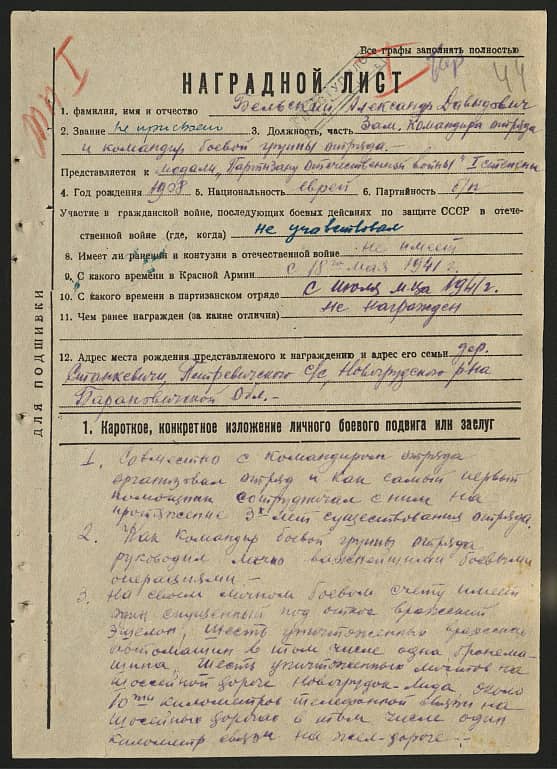 Все графы заполнять полностью
44
НАГРАДНОЙ ЛИСТ
1. фамилия, имя и отчество Бельский Александр Давыдович
2. Звание не присвоен 3. Должность, часть Зам. Командира отряда
и командир боевой группы отряда.
Представляется к медали „Партизану Отечественной войны" I степени
4. Год рождения 1908 5. Национальность еврей 6. Партийность б/п
Участие в гражданской войне, последующих боевых действиях по защите СССР в отече-
ственной войне (где, когда) не участвовал
8. Имеет ли ранения и контузии в отечественной войне не имеет
9. С какого времени в Красной Армии с 18го мая 1941 г.
10. С какого времени в партизанском отряде с июля м-ца 1941 г.
11. Чем ранее награжден (за какие отличия) не награжден
12. Адрес места рождения представляемого к награждению и адрес его семьи дер.
Станкевичи, Петревичского с/с, Новогрудского р-на
Барановичской Обл.-
ДЛЯ ПОДШИВКИ
1. Короткое, конкретное изложение личного боевого подвига или заслуг
1. Совместно с командиром отряда
организовал отряд и как самый первый
помощник сотрудничал с ним на
протяжение 3х лет существования отряда.
2. Как командир боевой группы отряда
руководил лично важнейшими боевыми
операциями.-
3. На своем личном боевом счету имеет
один спущенный под откос вражеский
эшелон, шесть уничтоженных вражеских
автомашин в том числе одна бронема-
шина. Шесть уничтоженных мостов на
шоссейной дороге Новогрудок-Лида, около
10ти километров телефонной связи на
шосейных дорогах в том числе один
километр связи на жел-дороге.-